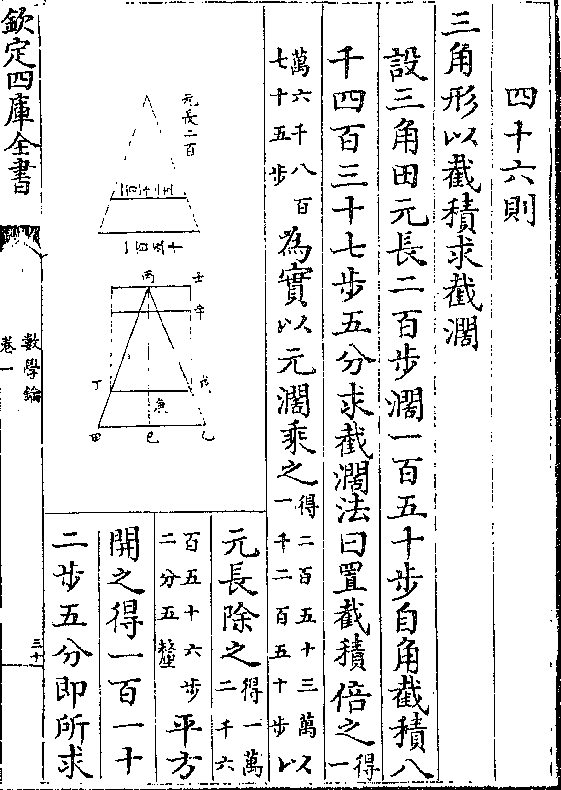 四十六則
三角形以截積求截濶
設三角田元長二百步濶一百五十步自角截積八
千四百三十七步五分求截濶法曰置截積倍之得一
萬六千八百七十五步為實以元濶乘之得二百五十三萬一千二百五十步以
元長除之得一萬二千六
百五十六步二分五釐平方
開之得一百一十
二步五分即所求
元長二百
丙
壬
辛
丁
戊
庚
甲
己
乙
欽定四庫全書
數學鑰
卷一
三十